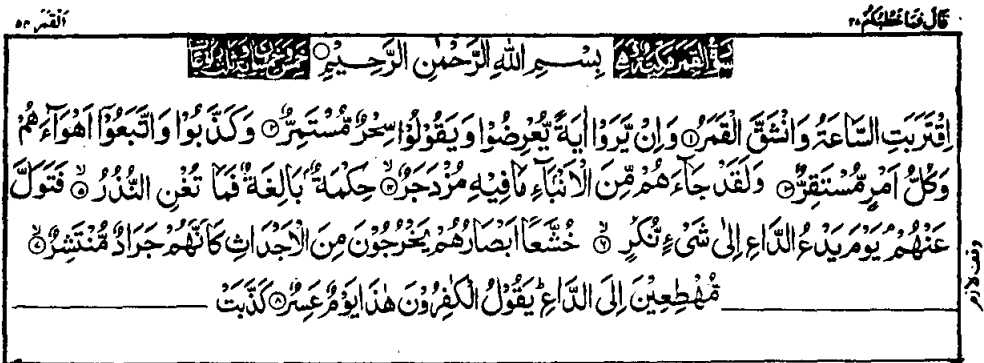 قَالَ فَمَا خَطْبُكُمْ ٢٧
اَلْقَمَرُ ٥٤
سُوْرَةُ الْقَمَرِ مَكِّيَّةٌ بِسْمِ اللهِ الرَّحْمٰنِ الرَّحِيْمِ
اِقْتَرَبَتِ السَّاعَةُ وَانْشَقَّ الْقَمَرُ ۝۱ وَاِنْ يَّرَوْا اٰيَةً يُّعْرِضُوْا وَيَقُوْلُوْا سِحْرٌ مُّسْتَمِرٌّ ۝۲ وَكَذَّبُوْا وَاتَّبَعُوْٓا اَهْوَآءَهُمْ
وَكُلُّ اَمْرٍ مُّسْتَقِرٌّ ۝۳ وَلَقَدْ جَآءَهُمْ مِّنَ الْاَنْبَآءِ مَا فِيْهِ مُزْدَجَرٌ ۝۴ حِكْمَةٌۢ بَالِغَةٌ فَمَا تُغْنِ النُّذُرُ ۝۵ فَتَوَلَّ
عَنْهُمْ ۘ يَوْمَ يَدْعُ الدَّاعِ اِلٰى شَىْءٍ نُّكُرٍ ۝۶ خُشَّعًا اَبْصَارُهُمْ يَخْرُجُوْنَ مِنَ الْاَجْدَاثِ كَاَنَّهُمْ جَرَادٌ مُّنْتَشِرٌ ۝۷
مُّهْطِعِيْنَ اِلَى الدَّاعِ ؕ يَقُوْلُ الْكٰفِرُوْنَ هٰذَا يَوْمٌ عَسِرٌ ۝۸ كَذَّبَتْ
وقف لازم